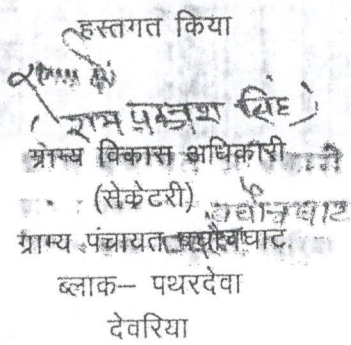 हस्तगत किया
(राम प्रकाश सिंह)
ग्राम्य विकास अधिकारी
(सेकेटरी)
ग्राम्य पंचायत घाट
ब्लाक– पथरदेवा
देवरिया